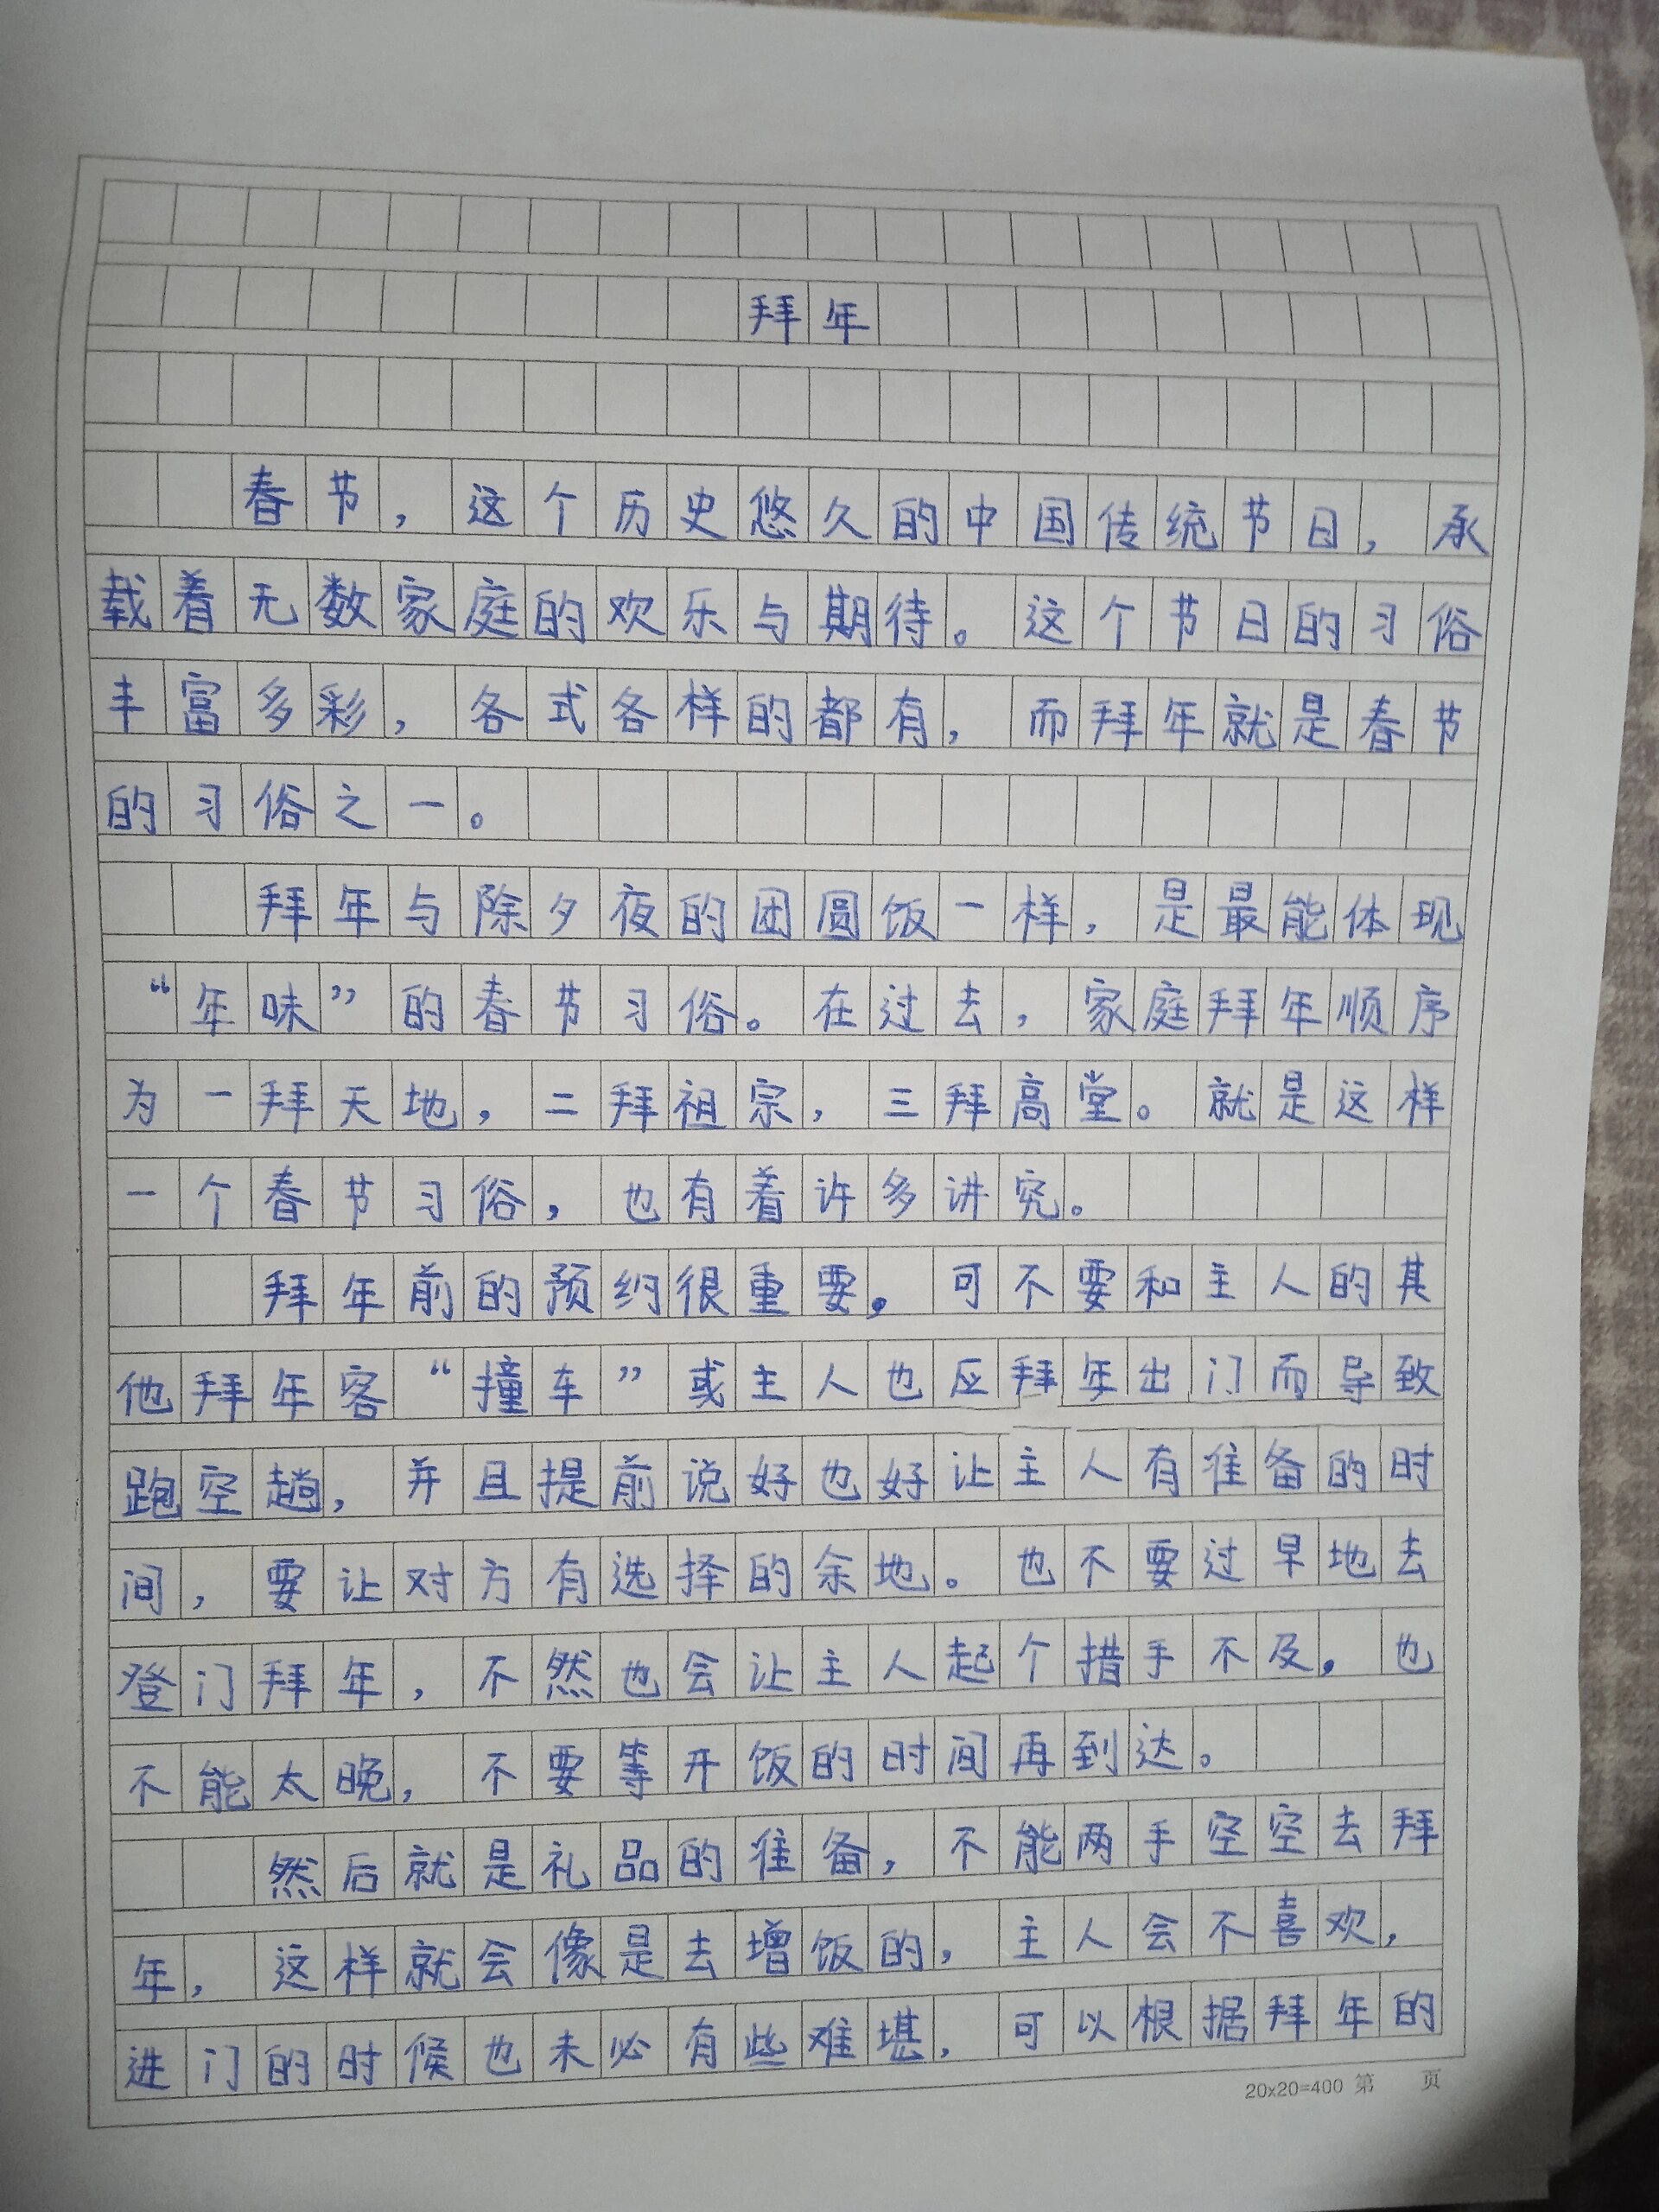 拜年
春节，这个历史悠久的中国传统节日，承
载着无数家庭的欢乐与期待。这个节日的习俗
丰富多彩，各式各样的都有，而拜年就是春节
的习俗之一。
拜年与除夕夜的团圆饭一样，是最能体现
“年味”的春节习俗。在过去，家庭拜年顺序
为一拜天地，二拜祖宗，三拜高堂。就是这样
一个春节习俗，也有着许多讲究。
拜年前的预约很重要。可不要和主人的其
他拜年客“撞车”或主人也应拜年出门而导致
跑空趟，并且提前说好也好让主人有准备的时
间，要让对方有选择的余地。也不要过早地去
登门拜年，不然也会让主人起个措手不及。也
不能太晚，不要等开饭的时间再到达。
然后就是礼品的准备，不能两手空空去拜
年，这样就会像是去增饭的，主人会不喜欢，
进门的时候也未必有些难堪，可以根据拜年的
20x20=400 第 页